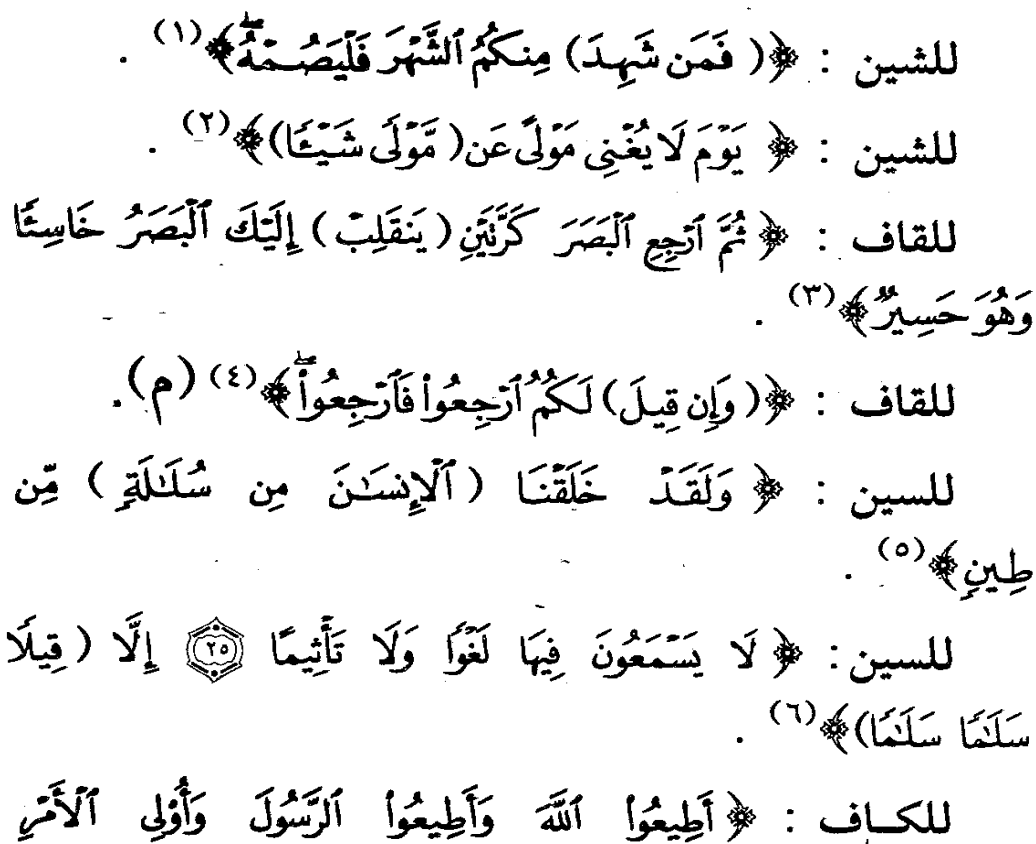 للشين : ﴿( فَمَن شَهِدَ) مِنكُمُ ٱلشَّهۡرَ فَلۡيَصُمۡهُۖ﴾(١) .
للشين : ﴿ يَوۡمَ لَا يُغۡنِي مَوۡلًى عَن( مَّوۡلٗى شَيۡـٔٗا)﴾(٢) .
للقاف : ﴿ ثُمَّ ٱرۡجِعِ ٱلۡبَصَرَ كَرَّتَيۡنِ( يَنقَلِبۡ ) إِلَيۡكَ ٱلۡبَصَرُ خَاسِئٗا
وَهُوَ حَسِيرٞ﴾(٣) .
للقاف : ﴿( وَإِن قِيلَ) لَكُمُ ٱرۡجِعُواْ فَٱرۡجِعُواْۖ﴾(٤) (م).
للسين : ﴿ وَلَقَدۡ خَلَقۡنَا ( ٱلۡإِنسَٰنَ مِن سُلَٰلَةٖ ) مِّن
طِينٖ﴾(٥) .
للسين : ﴿ لَا يَسۡمَعُونَ فِيهَا لَغۡوٗا وَلَا تَأۡثِيمًا ٢٥ إِلَّا ( قِيلٗا
سَلَٰمٗا سَلَٰمٗا)﴾(٦) .
للكـاف : ﴿ أَطِيعُواْ ٱللَّهَ وَأَطِيعُواْ ٱلرَّسُولَ وَأُوْلِي ٱلۡأَمۡرِ